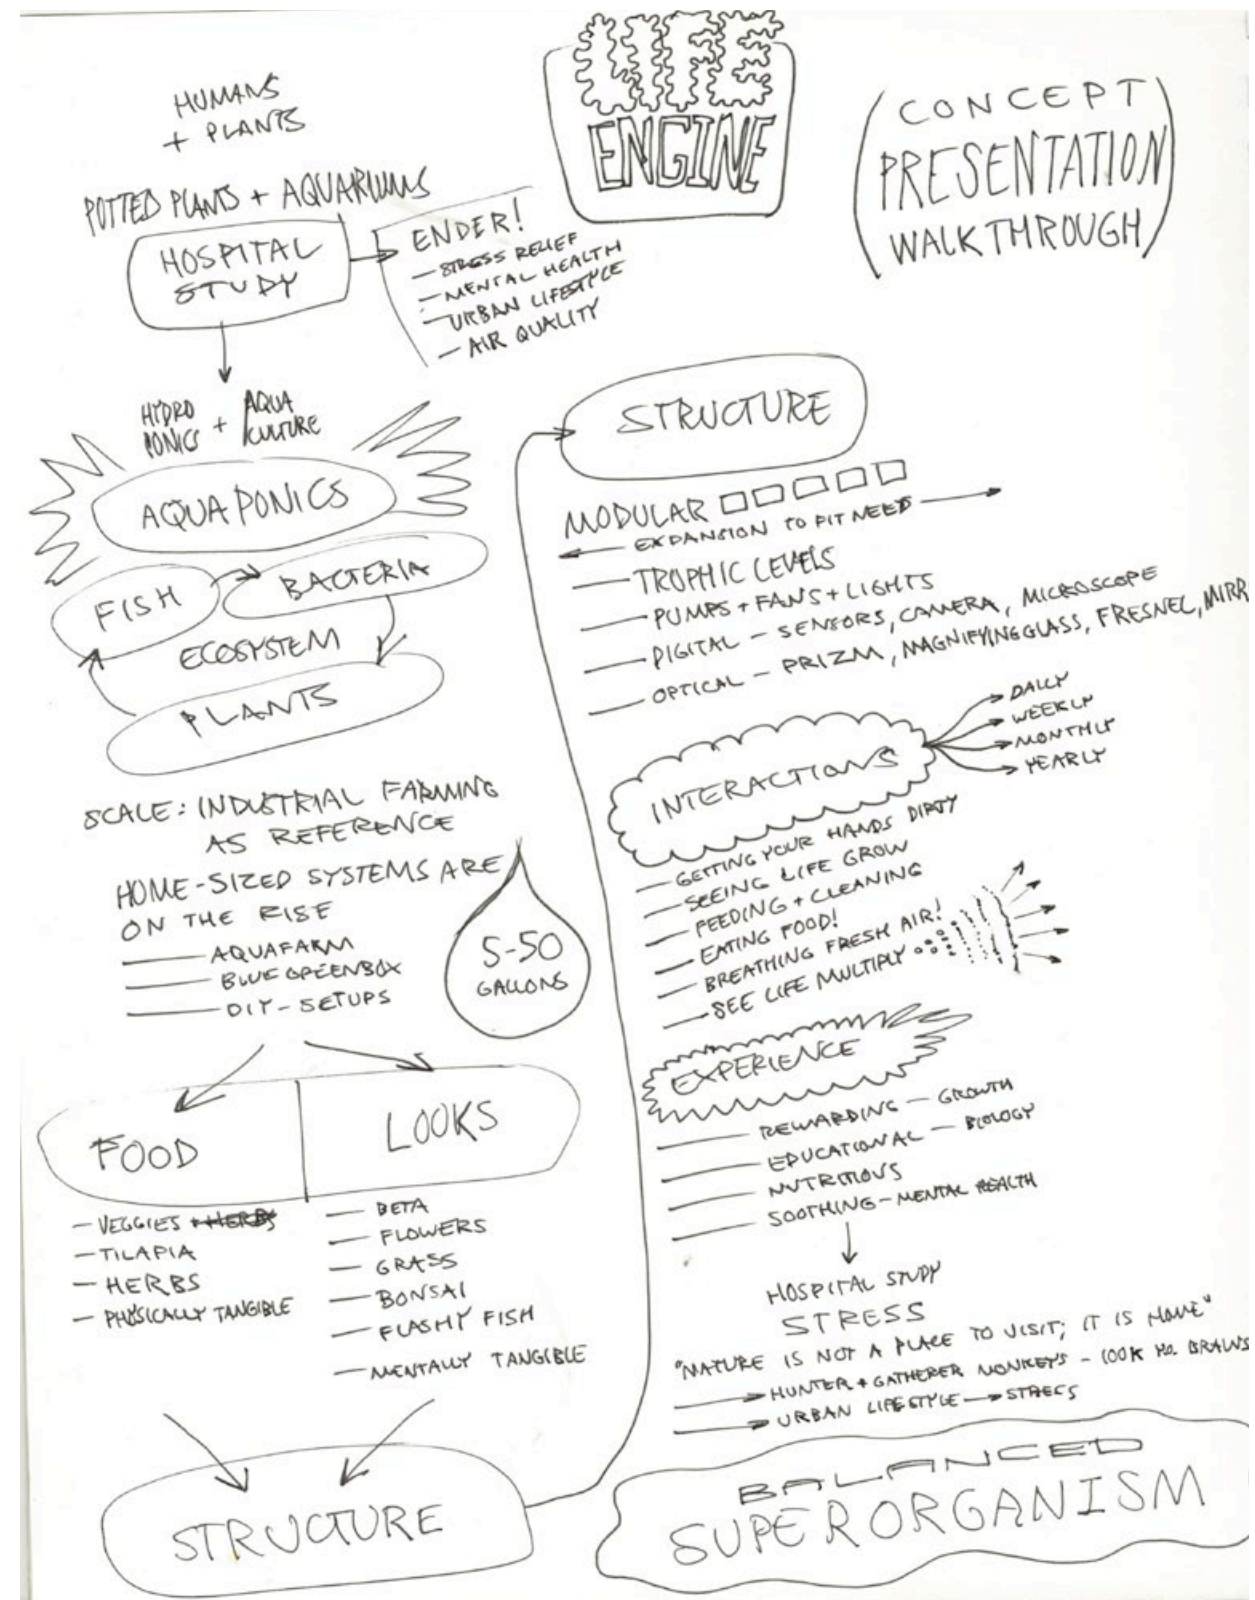 LIFE
ENGINE
(CONCEPT
PRESENTATION
WALKTHROUGH)
HUMANS
+ PLANTS
POTTED PLANTS + AQUARIUMS
HOSPITAL
STUDY
ENDER!
— STRESS RELIEF
— MENTAL HEALTH
— URBAN LIFESTYLE
— AIR QUALITY
HYDRO
PONICS
+
AQUA
CULTURE
AQUAPONICS
FISH
BACTERIA
ECOSYSTEM
PLANTS
SCALE: INDUSTRIAL FARMING
AS REFERENCE
HOME-SIZED SYSTEMS ARE
ON THE RISE
— AQUAFARM
— BLUE GREENBOX
— DIY-SETUPS
5-50
GALLONS
FOOD
— VEGGIES
— TILAPIA
— HERBS
— PHYSICALLY TANGIBLE
LOOKS
— BETA
— FLOWERS
— GRASS
— BONSAI
— FLASHY FISH
— MENTALLY TANGIBLE
STRUCTURE
STRUCTURE
MODULAR
EXPANSION TO FIT NEED
— TROPHIC LEVELS
— PUMPS + FANS + LIGHTS
— DIGITAL — SENSORS, CAMERA, MICROSCOPE
— OPTICAL — PRIZM, MAGNIFYING GLASS, FRESNEL, MIRR
INTERACTIONS
DAILY
WEEKLY
MONTHLY
YEARLY
— GETTING YOUR HANDS DIRTY
— SEEING LIFE GROW
— FEEDING + CLEANING
— EATING FOOD!
— BREATHING FRESH AIR!
— SEE LIFE MULTIPLY
EXPERIENCE
— REWARDING — GROWTH
— EDUCATIONAL — BIOLOGY
— NUTRITIOUS
— SOOTHING — MENTAL HEALTH
HOSPITAL STUDY
STRESS
"NATURE IS NOT A PLACE TO VISIT; IT IS HOME"
HUNTER + GATHERER MONKEYS - 100K YO. BRAINS
URBAN LIFESTYLE → STRESS
BALANCED
SUPERORGANISM